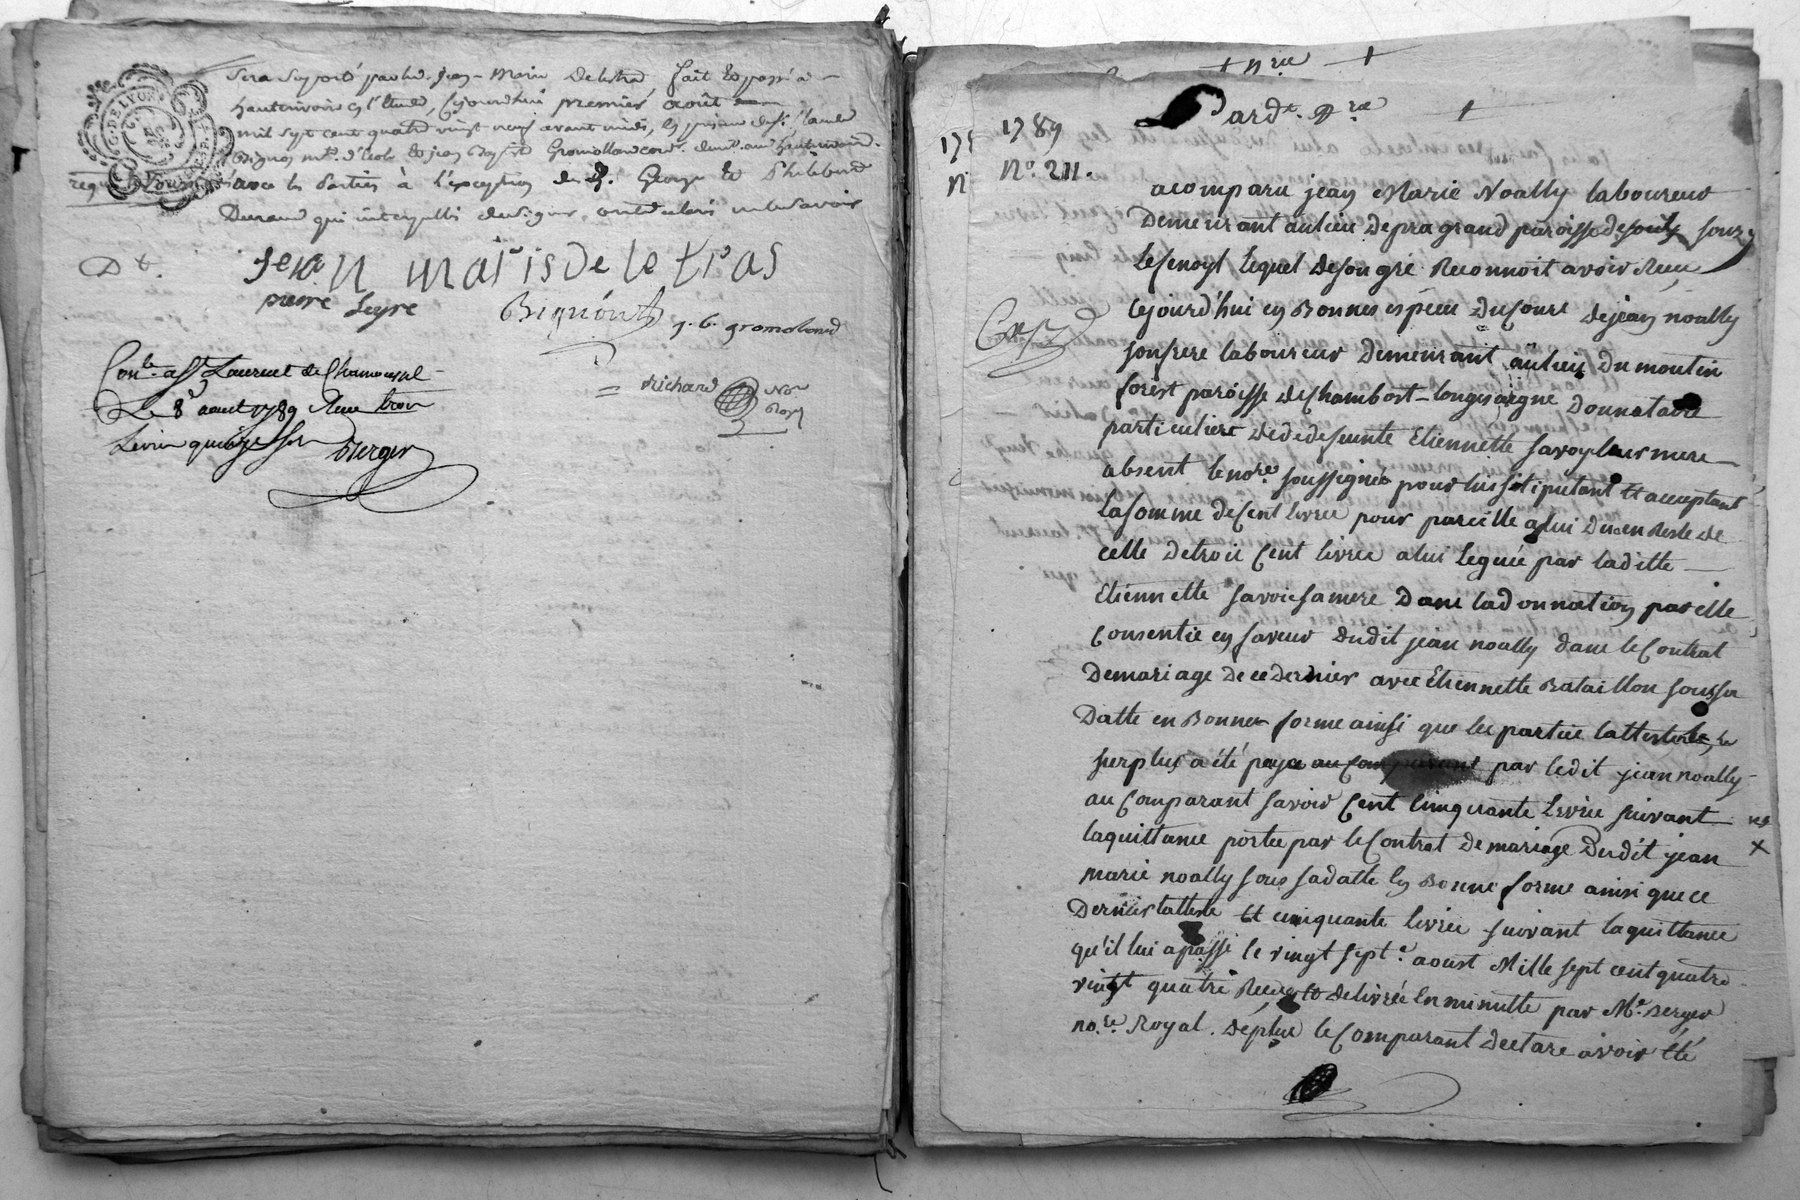 sera suporté par led. Jean-Marie Deletra fait et passé a
hauterivoire en l'étude, cejourdhui premier août
mil sept cent quatre vingt neuf avant midi, en présence de sr. Claude
Bignon mtre. d'écolle et jean Baptiste Gromolland
avec les parties à l'exception de George et Philiberte
Durand qui interpellés de signer, ont déclaré ne le savoir
Dt.
jean maris De le tras
pierre Seyve
Bignónt
j. b. gromoland
richard Nore
Royal
Conle. a St Laurent de Chamousset
Le 8 aout 1789 Reçu trois
Livres quinze sols
Berger
+ nre +
Pardt. Nre +
1789
No. 211.
acomparu jean Marie Noally laboureur
Demeurant au lieu De pra grand paroisse de
Lesenoyl Lequel De son gré Reconnoit avoir Reçu
cejourd'hui en Bonnes espèces Du Cours De jean noally
son frere laboureur Demeurant au lieu Du moulin
forest paroisse de Chambost-longessaigne Donnataire
particuliere de defeunte Etiennette Savoye leur mere
absent le nore. soussigné pour lui stipulant et acceptant
la somme de Cent livres pour pareille a lui Due en Reste de
celle de trois Cent livres a lui Leguée par laditte
Etiennette Savoie sa mere Dans la donnation par elle
Consentie en faveur dudit jean noally dans le Contrat
De mariage de ce dernier avec Etiennette Bataillon sous sa
Datte en Bonne forme ainsi que les parties l'attestent, le
surplus a été payé au Comparant par ledit jean noally
au Comparant savoir Cent Cinquante Livres suivant
la quittance portée par le Contrat de mariage Dudit jean
marie noally sous sa datte en Bonne forme ainsi que ce
Dernier l'atteste et cinquante livres suivant la quittance
qu'il lui a passé le vingt sept e. aoust Mille sept cent quatre
vingt quatre Reçue et delivrée en minutte par Me. Berger
nore. Royal. De plus le Comparant declare avoir été